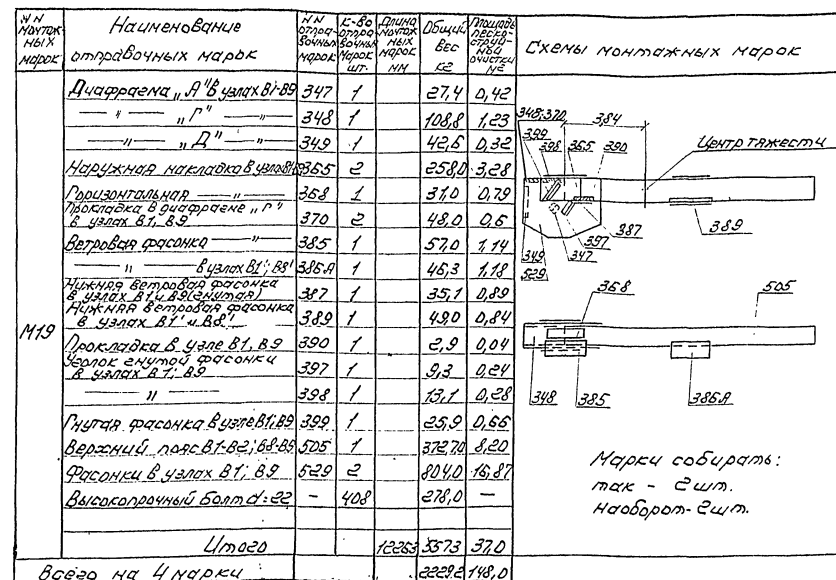 NN монтажных марок | Наименование отправочных марок | NN отправочных марок | К-во отправочных марок шт. | Длина монтажных марок мм | Общий вес кг | Площадь пескоструйной очистки м2 | Схемы монтажных марок
М19
Диафрагма „А" в узлах В1-В9 | 347 | 1 | 27,4 | 0,42
— " — „Г" — " — | 348 | 1 | 108,8 | 1,23
— " — „Д" — " — | 349 | 1 | 42,6 | 0,32
Наружная накладка в узле В1-В9 | 365 | 2 | 258,0 | 3,28
Горизонтальная — " — | 368 | 1 | 31,0 | 0,79
Прокладка в диафрагме „Г"
в узлах В1, В9 | 370 | 2 | 48,0 | 0,6
Ветровая фасонка — " — | 385 | 1 | 57,0 | 1,14
— " — в узлах В1'; В8' | 386А | 1 | 46,3 | 1,18
Нижняя ветровая фасонка
в узлах В1 и В9 (гнутая) | 387 | 1 | 35,1 | 0,89
Нижняя ветровая фасонка
в узлах В1' и В8' | 389 | 1 | 49,0 | 0,84
Прокладка в узле В1, В9 | 390 | 1 | 2,9 | 0,04
Уголок гнутой фасонки
в узлах В1; В9 | 397 | 1 | 9,3 | 0,24
— " — | 398 | 1 | 13,1 | 0,28
Гнутая фасонка в узле В1; В9 | 399 | 1 | 25,9 | 0,66
Верхний пояс В1-В2; В8-В9 | 505 | 1 | 3727,0 | 8,20
Фасонки в узлах В1; В9 | 529 | 2 | 804,0 | 16,87
Высокопрочный болт d=22 | - | 408 | 278,0 | —
Итого | 12263 | 5573 | 37,0
Всего на 4 марки | 22292 | 148,0
348;370
3,84
399
398
365
390
Центр тяжести
387
389
397
347
349
529
368
505
348
385
386А
Марки собирать:
так - 2 шт.
наоборот - 2 шт.